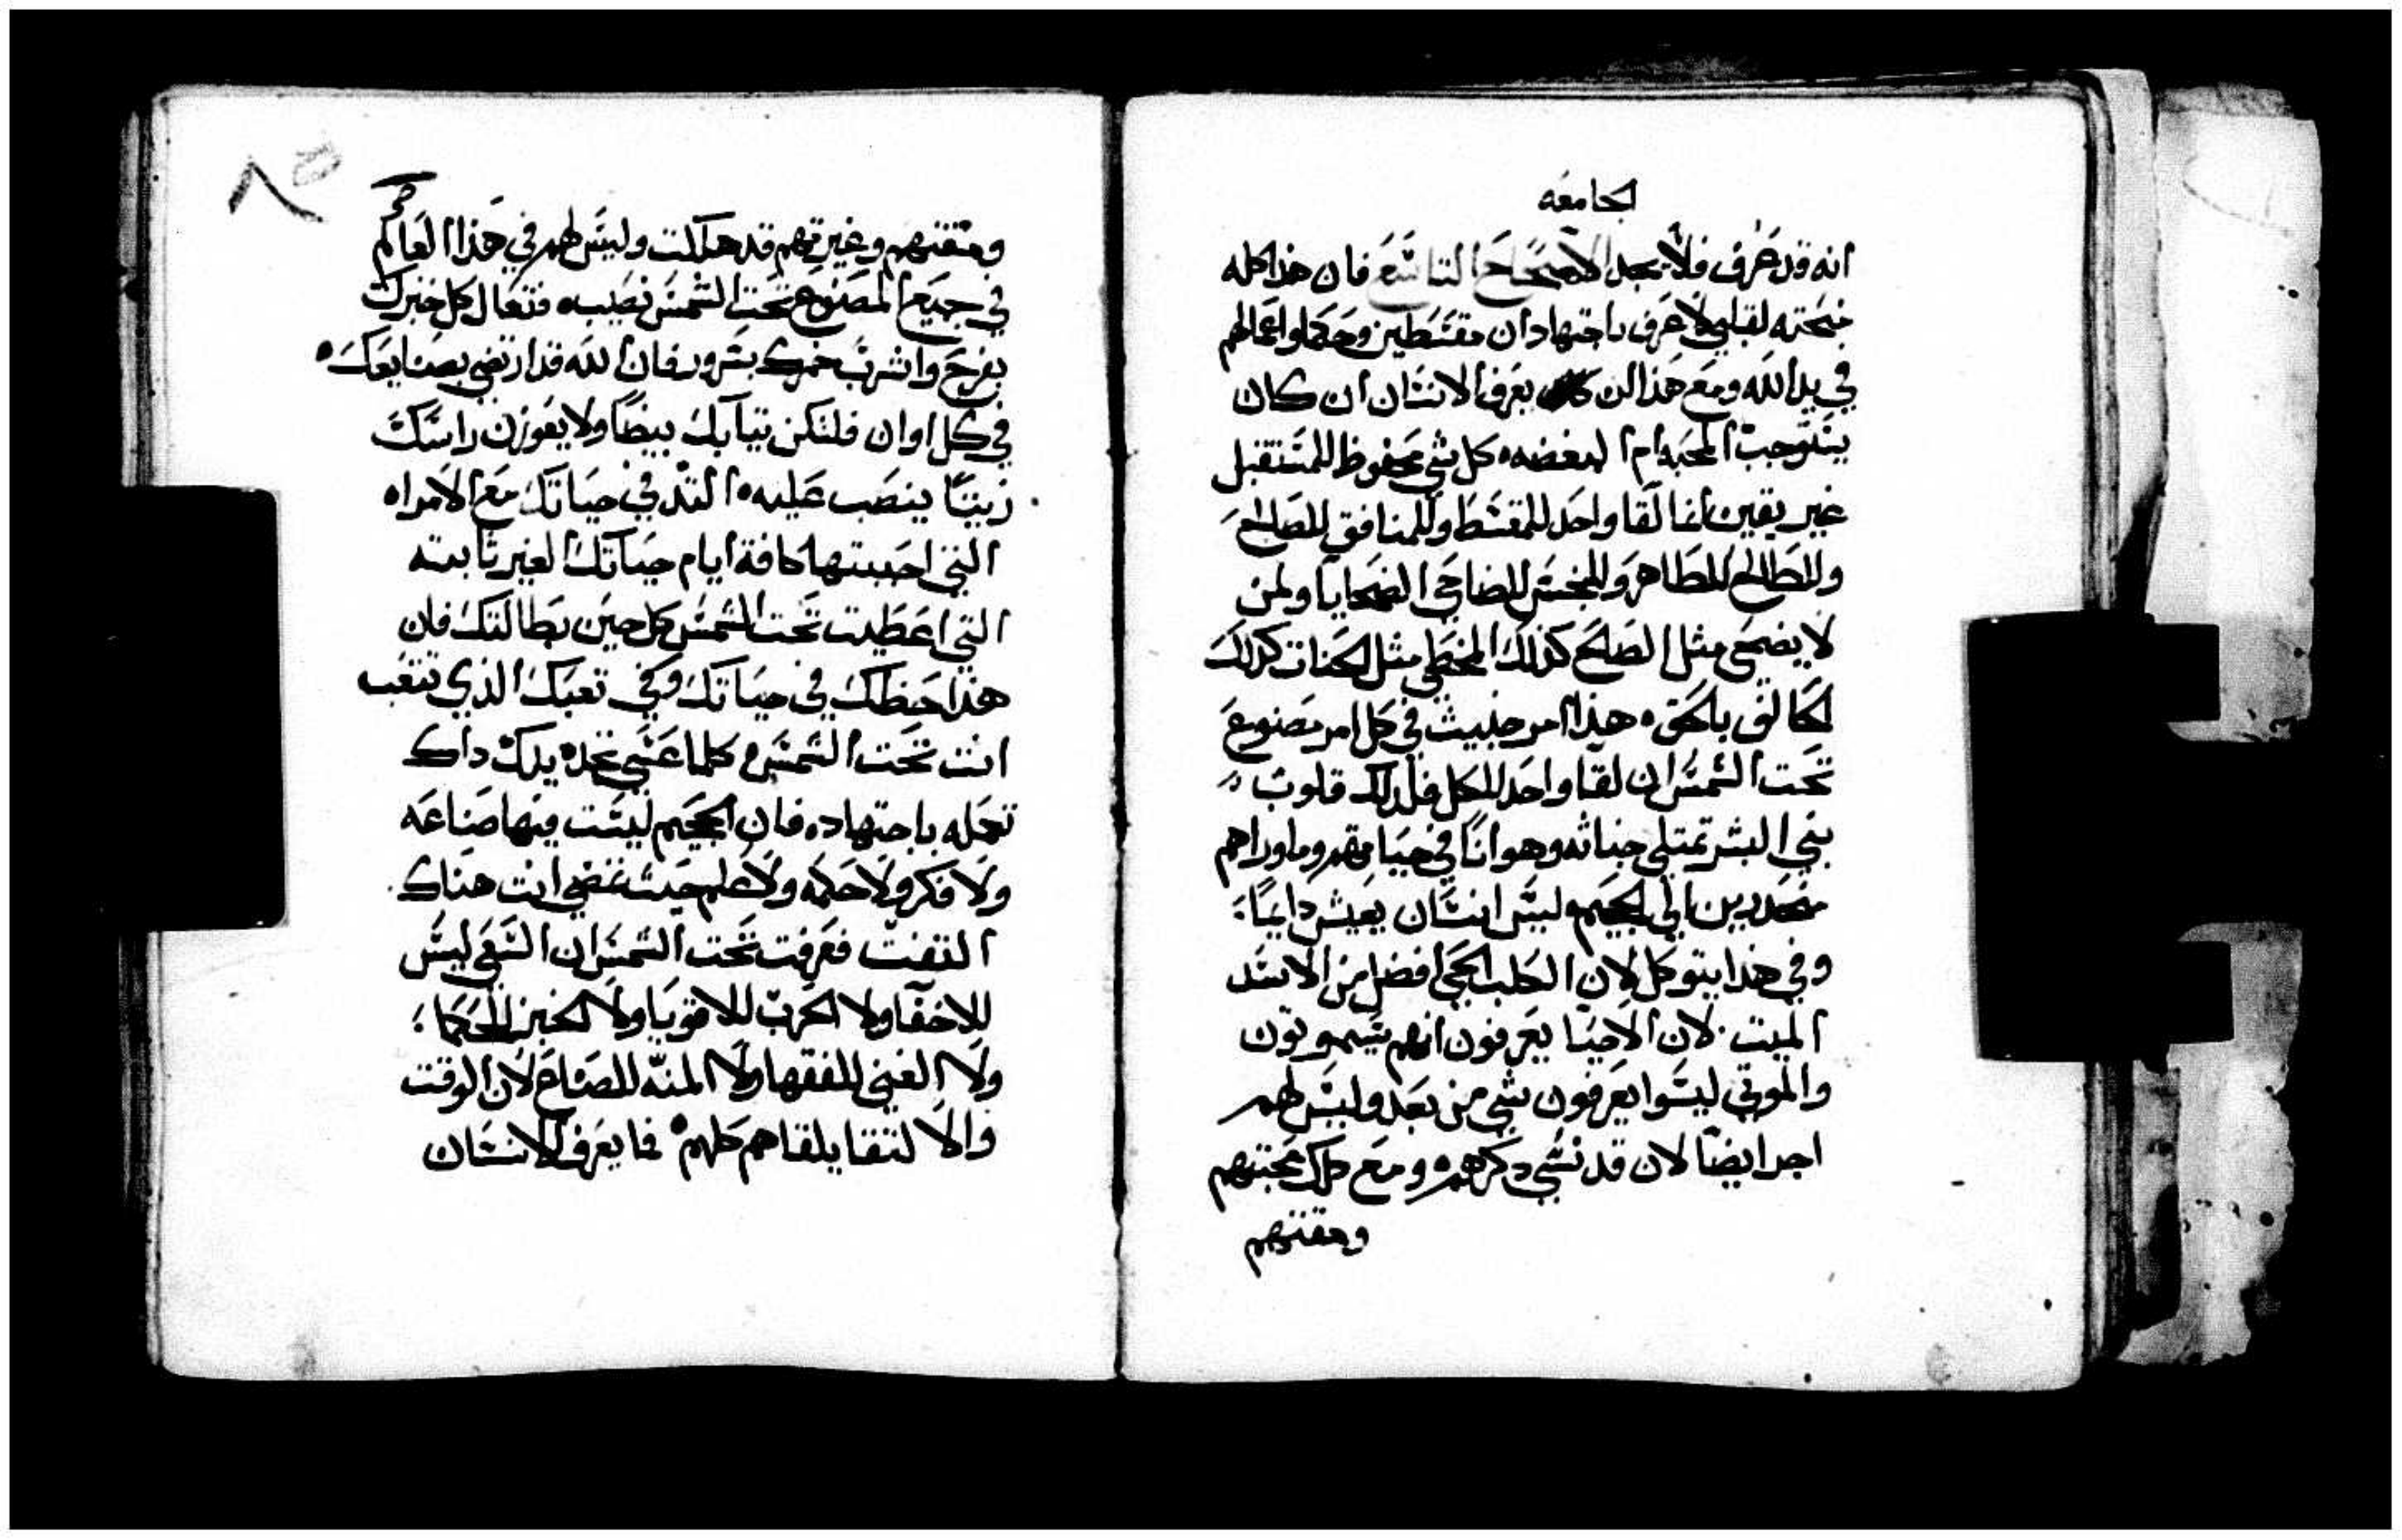 الجامعه
انه قد عرف فلا يجد الاصحاح التاسع فان هذا كله
منحته لقلبي لاعرف باجتهاد ان مقتسطين وحكما واعمالهم
في يد الله ومع هذا لن يعرف الانسان ان كان
يستوجب المحبه ام البغضه ه كل شي محفوظ للمستقبل
غير يقين لقا واحد للمقسط وللمنافق للصالح
وللطالح للطاهر وللنجس للضاحي الضحايا ولمن
لا يضحي مثل الصالح كذلك المخطي مثل الحنات كذلك
لحالف بالحق ه هذا امر خبيث في كل امر مصنوع
تحت الشمس ان لقا واحد للكل فلذلك قلوب
بني البشر تمتلي خباثه وهوانا في حياتهم وما وراهم
منحدرين الي الجحيم وليس انسان يعيش دايما
وفي هذا يتوكل لان الكلب الحي افضل من الاسد
الميت لان الاحيا يعرفون انهم سيموتون
والموتي ليسوا يعرفون شي من بعد وليس لهم
اجر ايضا لان قد نسي ذكرهم ه ومع ذلك محبتهم
ومقتهم
٨٥
ومقتهم وغيرتهم قد هلكت وليس لهم في هذا العالم
في جميع المصنوع تحت الشمس نصيب ه فتعال كل خبزك
بفرح واشرب خمرك بسرور فان الله قد ارتضي بصنايعك ه
في كل اوان فلتكن ثيابك بيضا ولا يعوزن راسك
زيتا ينصب عليه ه التذ في حياتك مع الامراه
التي احببتها كافة ايام حياتك الغير ثابته
التي اعطيت تحت الشمس كل حين بطالتك فان
هذا حظك في حياتك وفي تعبك الذي تتعب
انت تحت الشمس ه كلما عسي تجده يدك داك
تعمله باجتهاده فان الجحيم ليست فيها صناعه
ولا فكر ولا حكمه ولا علم حيث تمضي انت هناك
التفت فعرفت تحت الشمس ان السعي ليس
للاخفا ولا الحرب للاقويا ولا الخبز للحكما
ولا الغني للفقها ولا المنه للصناع لان الوقت
والا لتقا يلقاهم كلهم ه فما يعرف الانسان